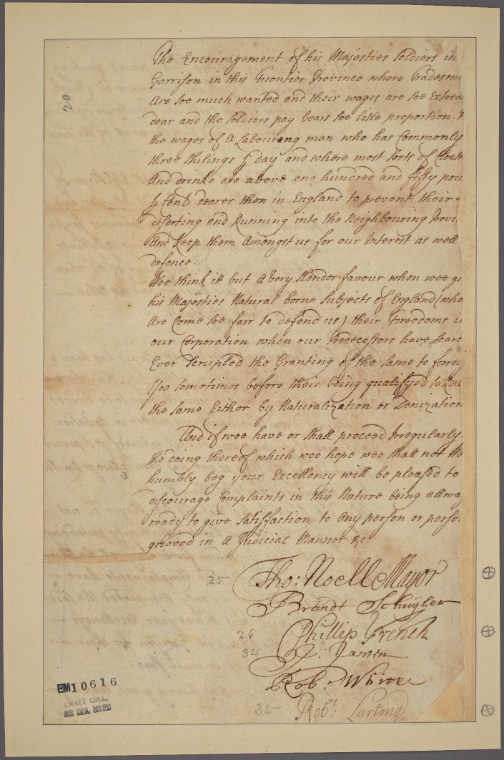 The Encouragement of his Majesties Soldiers in
Garrison in this Frontier Province where tradesm
Are soe much wanted and their wages are soe Extrea
dear and the Soldiers pay bears soe little proportion
the wages of A Labouring man who has Commonly
three shilings p day and where most sorts of Cloath
And drinke are above one hundred and fifty pou
p Cent dearer then in England to prevent their
deserting and Running into the Neighbouring Provi
And keep them Amongst us for our Interest as well
defence.
Wee think it but A very slender favour when wee gi
his Majesties Natural borne Subjects of England (who
Are Come soe farr to defend us) their freedoms in
our Corporation when our Predecessors have scarce
Ever scrupled the Granting of the same to forei
sometimes before their being qualifyed to
the same Either by Naturalization or Denization
And if wee have or shall proceed Irregularly
the doing thereof which wee hope wee shall not We
humbly beg your Excellency will be pleased to
discourage Complaints in this Nature being allwa
ready to give satisfaction to Any person or perso
grieved in A Judicial Manner &c
25 Tho: Noell Mayor
Brandt Schuyler
26 Phillip French
34 J. Jansen
Rob.
35 Rob.t Lurting
20
EM10616
EMMET COLL.